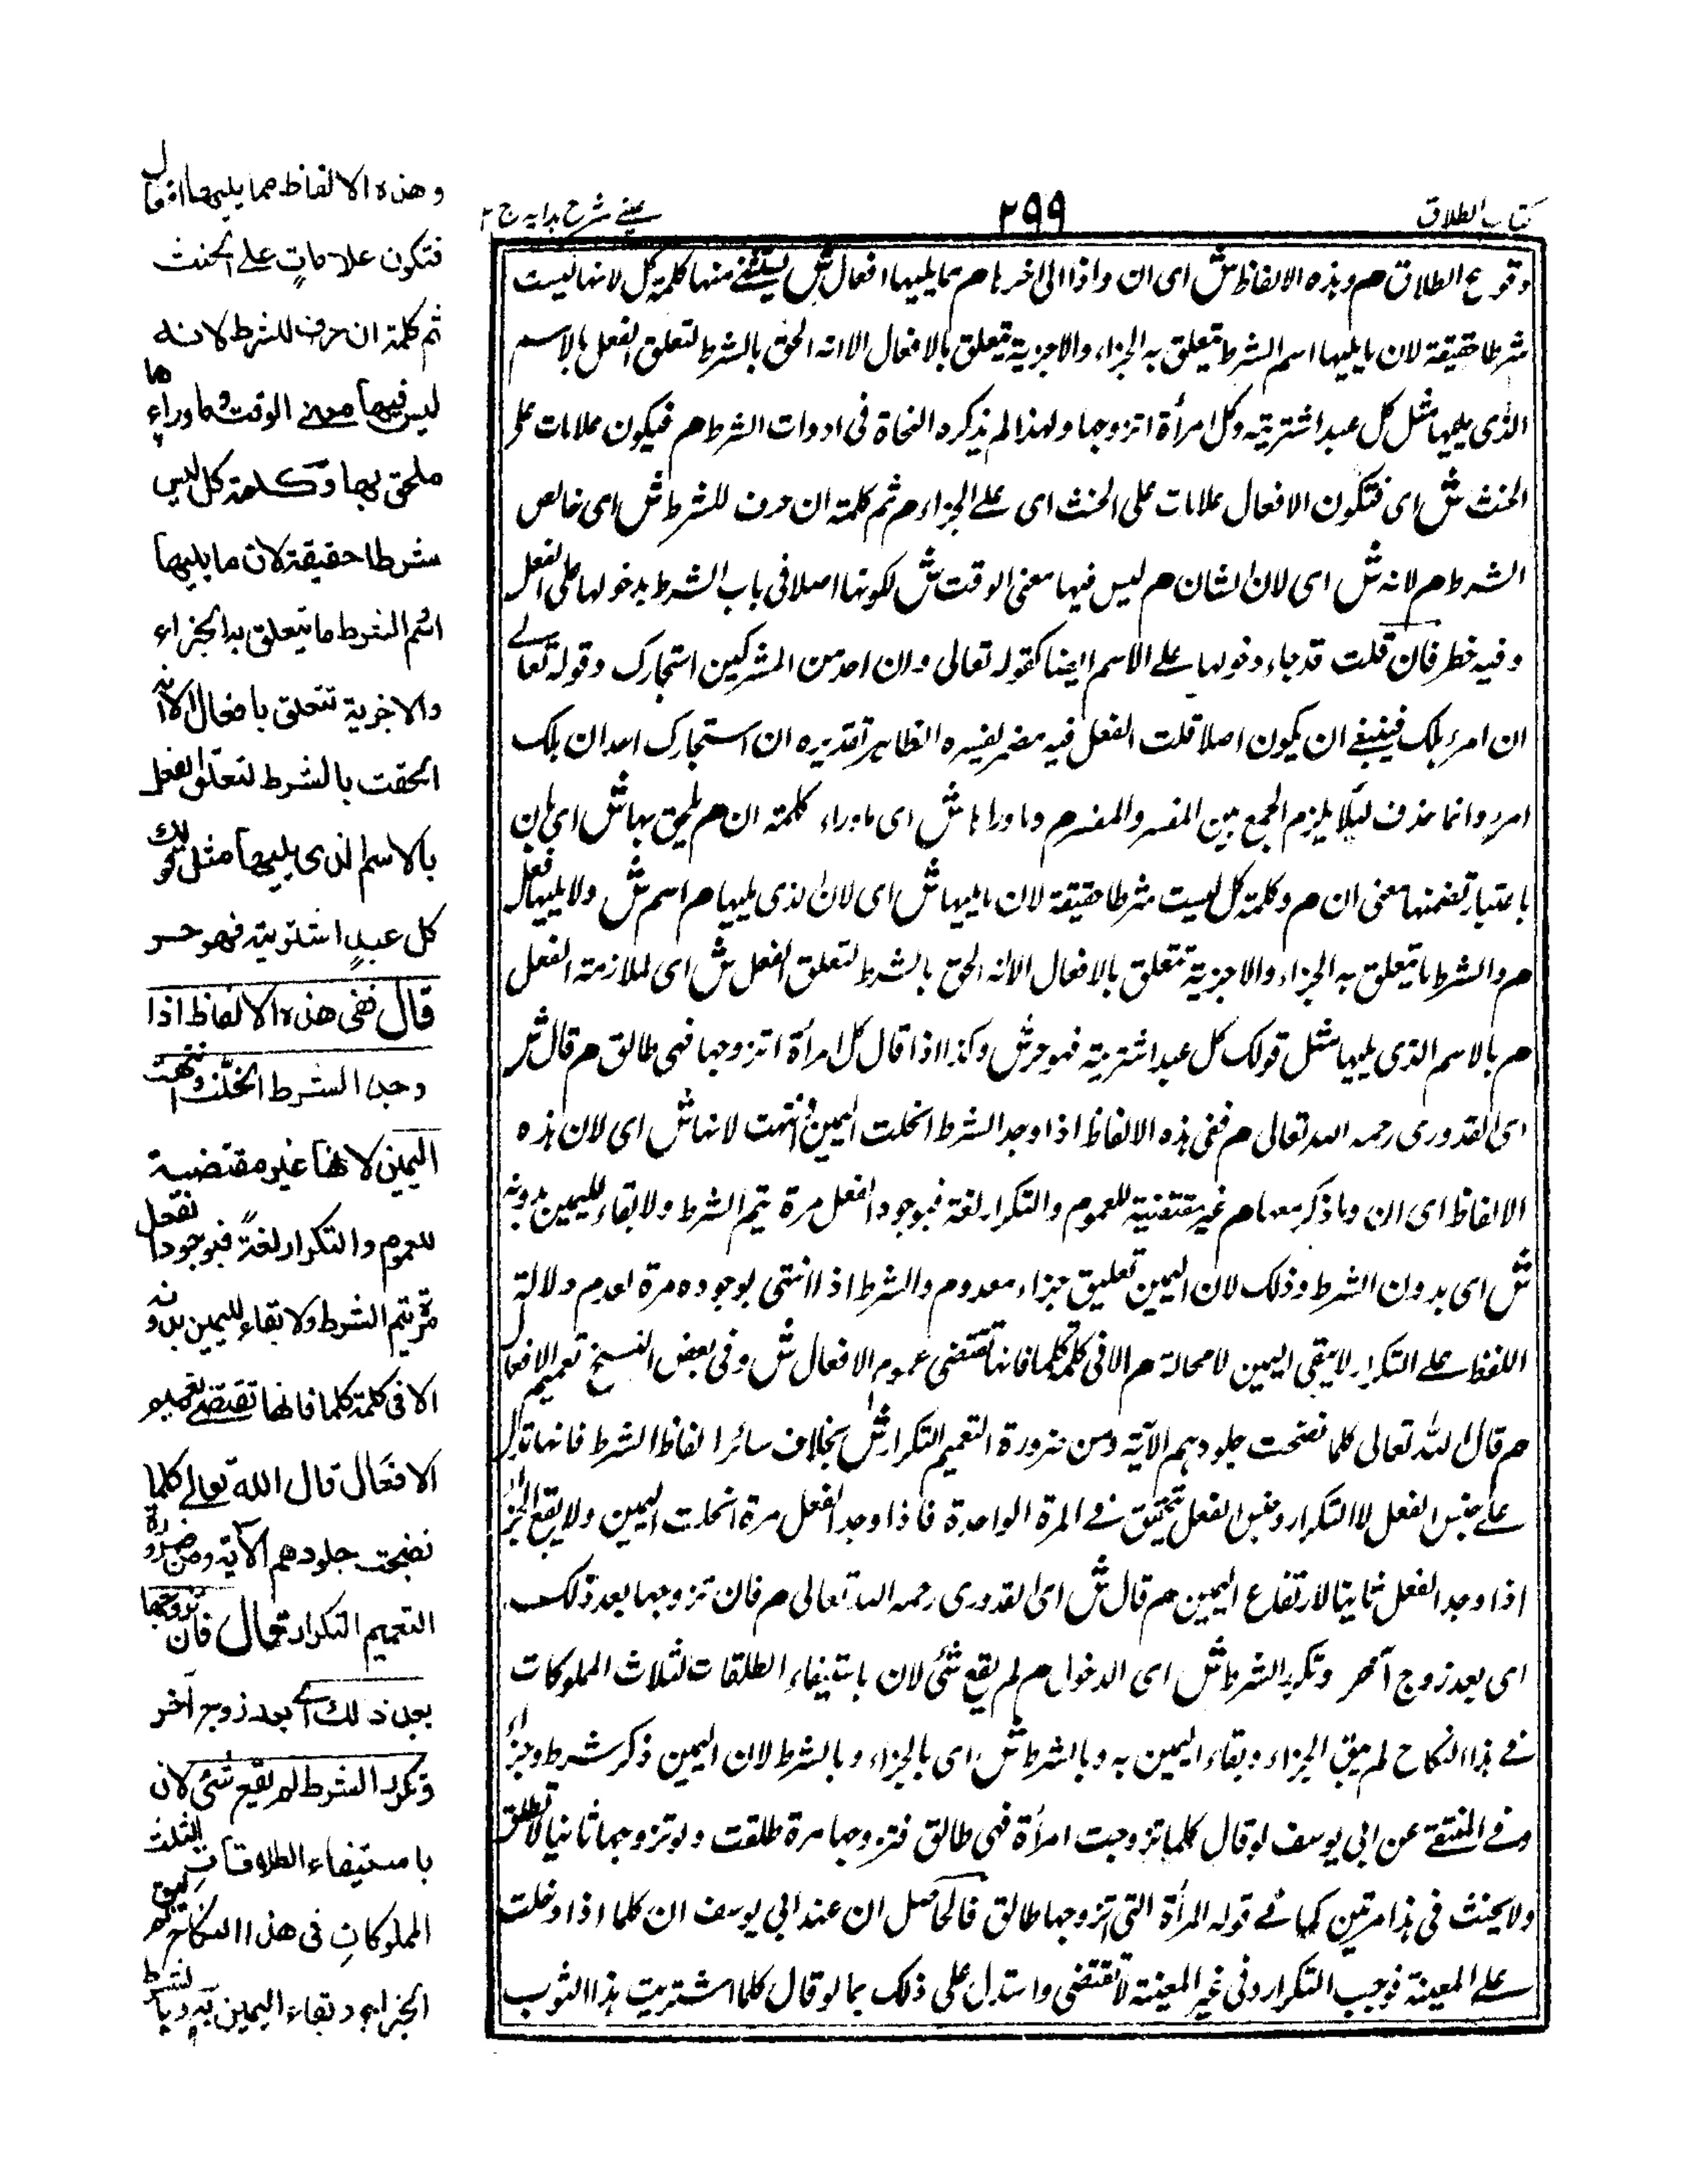 كتاب الطلاق
٢٩٩
عینے شرح ہدایہ ج ٢
وقوع الطلاق م وہذہ الالفاظ ش ای ان واذا الی اخرہا م مما یلیہا افعال ش یستثنے منہا کلمۃ کل لانہا لیست
شرطا حقیقۃ لان ما یلیہا اسم الشرط یتعلق بہ الجزاء والاجزیۃ یتعلق بالافعال الا انہ الحق بالشرط لتعلق الفعل بالاسم
الذی یلیہا مثل کل عبد اشتریتہ وکل امرأۃ اتزوجہا ولہذا لم یذکرہ النحاۃ فی ادوات الشرط م فیکون علامات علی
الحنث ش ای فتکون الافعال علامات علی الحنث ای علے الجزاء م ثم کلمۃ ان حرف للشرط ش ای خالص
الشرط م لانہ ش ای لان الشان م لیس فیہا معنی الوقت ش لکونہا اصلا فی باب الشرط بدخولہا علی الفعل
وفیہ خطر فان قلت قد جاء دخولہا علے الاسم ایضا کقولہ تعالی وان احد من المشرکین استجارک وقولہ تعالے
ان امرء ہلک فینبغے ان یکون اصلا قلت الفعل فیہ مضمر یفسرہ الظاہر تقدیرہ ان استجارک احد ان ہلک
امرء وانما حذف لئلا یلزم الجمع بین المفسر والمفسر م وما وراہا ش ای ما وراء کلمۃ ان م یلحق بہا ش ای بان
باعتبار تضمنہا معنی ان م وکلمۃ کل لیست شرطا حقیقۃ لان ما یلیہا ش ای لان الذی یلیہا م اسم ش ولا یلیہا فعل
م والشرط ما یتعلق بہ الجزاء والاجزیۃ تتعلق بالافعال الا انہ الحق بالشرط لتعلق الفعل ش ای لملازمۃ الفعل
م بالاسم الذی یلیہا مثل قولک کل عبد اشتریتہ فہو حر ش وکذا اذا قال کل امرأۃ اتزوجہا فہی طالق م قال ش
ای القدوری رحمہ اللہ تعالی م ففی ہذہ الالفاظ اذا وجد الشرط انحلت الیمین وانتہت لانہا ش ای لان ہذہ
الالفاظ ای ان وما ذکر معہا م غیر مقتضیۃ للعموم والتکرار لغۃ فبوجود الفعل مرۃ یتم الشرط ولا بقاء للیمین بدونہ
ش ای بدون الشرط وذلک لان الیمین تعلیق جزاء معدوم والشرط اذا انتہی بوجودہ مرۃ لعدم دلالۃ
اللفظ علے التکرار لا یبقی الیمین لا محالۃ م الا فی کلمۃ کلما فانہا تقتضی عموم الافعال ش وفی بعض النسخ تعمیم الافعال
م قال اللہ تعالی کلما نضجت جلودہم الآیۃ ومن ضرورۃ التعمیم التکرار ش بخلاف سائر الفاظ الشرط فانہا تدل
علے جنس الفعل لا التکرار وجنس الفعل یتحقق فے المرۃ الواحدۃ فاذا وجد الفعل مرۃ انحلت الیمین ولا یقع الجزاء
اذا وجد الفعل ثانیا لارتفاع الیمین م قال ش ای القدوری رحمہ اللہ تعالی م فان تزوجہا بعد ذلک
ای بعد زوج آخر وتکرر الشرط ش ای الدخول م لم یقع شئ لان باستیفاء الطلقات الثلاث المملوکات
فے ہذا النکاح لم یبق الجزاء وبقاء الیمین بہ وبالشرط ش ای بالجزاء وبالشرط لان الیمین ذکر شرط وجزاء
وفے المنتقے عن ابی یوسف لو قال کلما تزوجت امرأۃ فہی طالق فتزوجہا مرۃ طلقت ولو تزوجہا ثانیا لا تطلق
ولا یحنث فی ہذا مرتین کما فے قولہ المرأۃ التی اتزوجہا طالق فالحاصل ان عند ابی یوسف ان کلما اذا دخلت
علے المعینۃ توجب التکرار وفی غیر المعینۃ لا تقتضی واستدل علی ذلک بما لو قال کلما اشتریت ہذا الثوب
وهذه الالفاظ مما يليها افعال
فتكون علاماتٍ على الحنث
ثم كلمة ان حرف للشرط لانه
ليس فيها معنے الوقت وما وراءها
ملحق بها وكلمة كل ليس
شرطا حقيقة لان ما يليها
اسم الشرط ما يتعلق به الجزاء
والاجزية تتعلق بافعال الا انه
الحقت بالشرط لتعلق الفعل
بالاسم الذى يليها مثل قولك
كل عبدٍ اشتريته فهو حر
قال ففى هذه الالفاظ اذا
وجد الشرط انحلّت وانتهت
اليمين لانها غير مقتضية
للعموم والتكرار لغةً فبوجود الفعل
مرة يتم الشرط ولا بقاء لليمين بدونه
الا فى كلمة كلما فانها تقتضے تعميم
الافعال قال الله تعالے كلما
نضجت جلودهم الآية ومن ضرورة
التعميم التكرار قال فان تزوجها
بعد ذلك اے بعد زوج آخر
وتكرر الشرط لم يقع شئ لان
باستيفاء الطلاقات الثلث
المملوكات فى هذا النكاح لم يبق
الجزاء وبقاء اليمين به وبالشرط